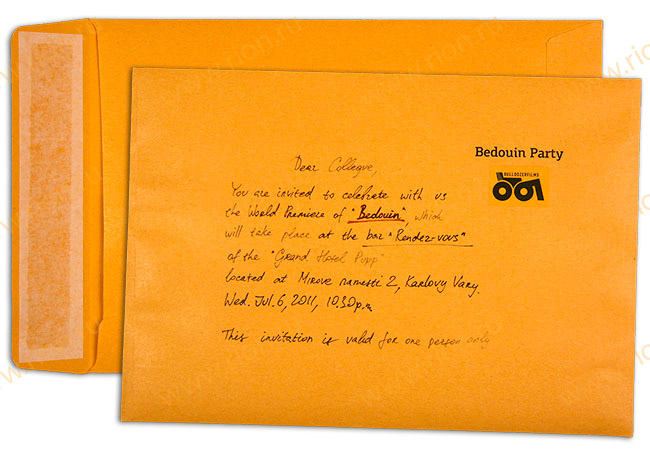 Bedouin Party
BULLDOZERFILMS
Dear Collegue,
You are invited to celebrate with us
the World Premiere of "Bedouin", which
will take place at the bar "Rendez-vous"
of the "Grand Hotel Pupp"
located at Mirove namesti 2, Karlovy Vary.
Wed. Jul. 6, 2011, 10.30 p.m.
This invitation is valid for one person only